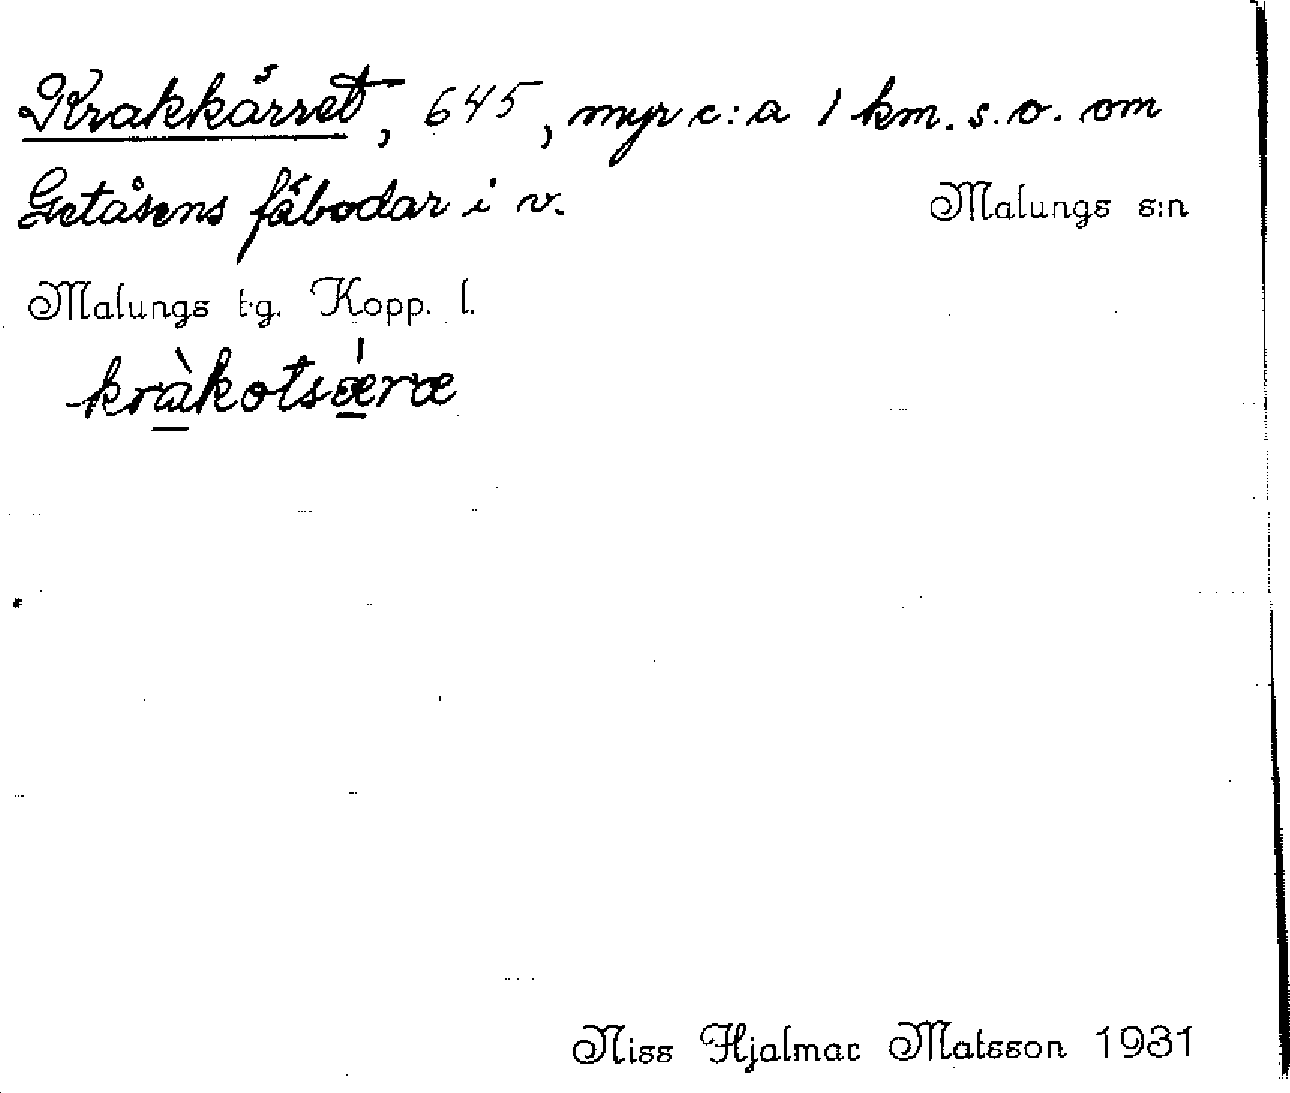 Krakkärret, 645, myr c:a 1 km. s.o. om
Getåsens fäbodar i v. Malungs s:n
Malungs tg. Kopp. l.
kràkotsǽræ
Niss Hjalmar Matsson 1931